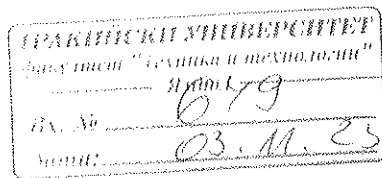 ТРАКИЙСКИ УНИВЕРСИТЕТ
факултет "Техника и технологии"
Ямбол
Вх. №
03.11.23